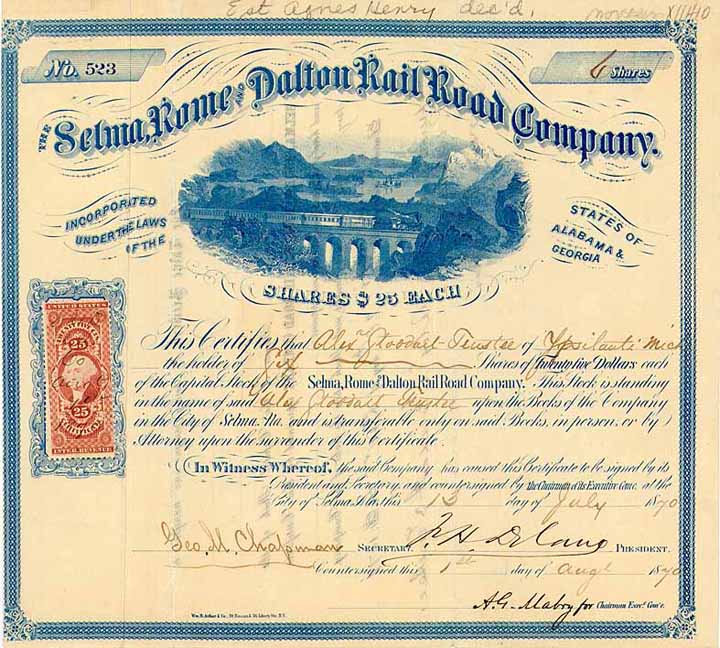 Est Agnes Henry dec'd,
No. 523
6 Shares
THE Selma, Rome AND Dalton Rail Road Company.
INCORPORATED
UNDER THE LAWS
OF THE
STATES OF
ALABAMA &
GEORGIA
SHARES $25 EACH
UNITED STATES
25
25
INTER. REVENUE
This Certifies, that Alexr Goodall Trustee of Ypsilanti Mich
the holder of Six Shares of Twenty five Dollars each
of the Capital Stock of the Selma, Rome and Dalton Rail Road Company. This Stock is standing
in the name of said Alex Goodall Trustee upon the Books of the Company
in the City of Selma. Ala. and is transferable only on said Books, in person, or by
Attorney upon the surrender of this Certificate.
In Witness Whereof, the said Company has caused this Certificate to be signed by its
President and Secretary, and countersigned by the Chairman of its Executive Com'ee. at the
City of Selma Ala. this 13 day of July 1870
Geo. M. Chapman SECRETARY. PRESIDENT.
Countersigned this 1st day of Augt 1870
A.G. Mabry for Chairman Exec. Com'ee.